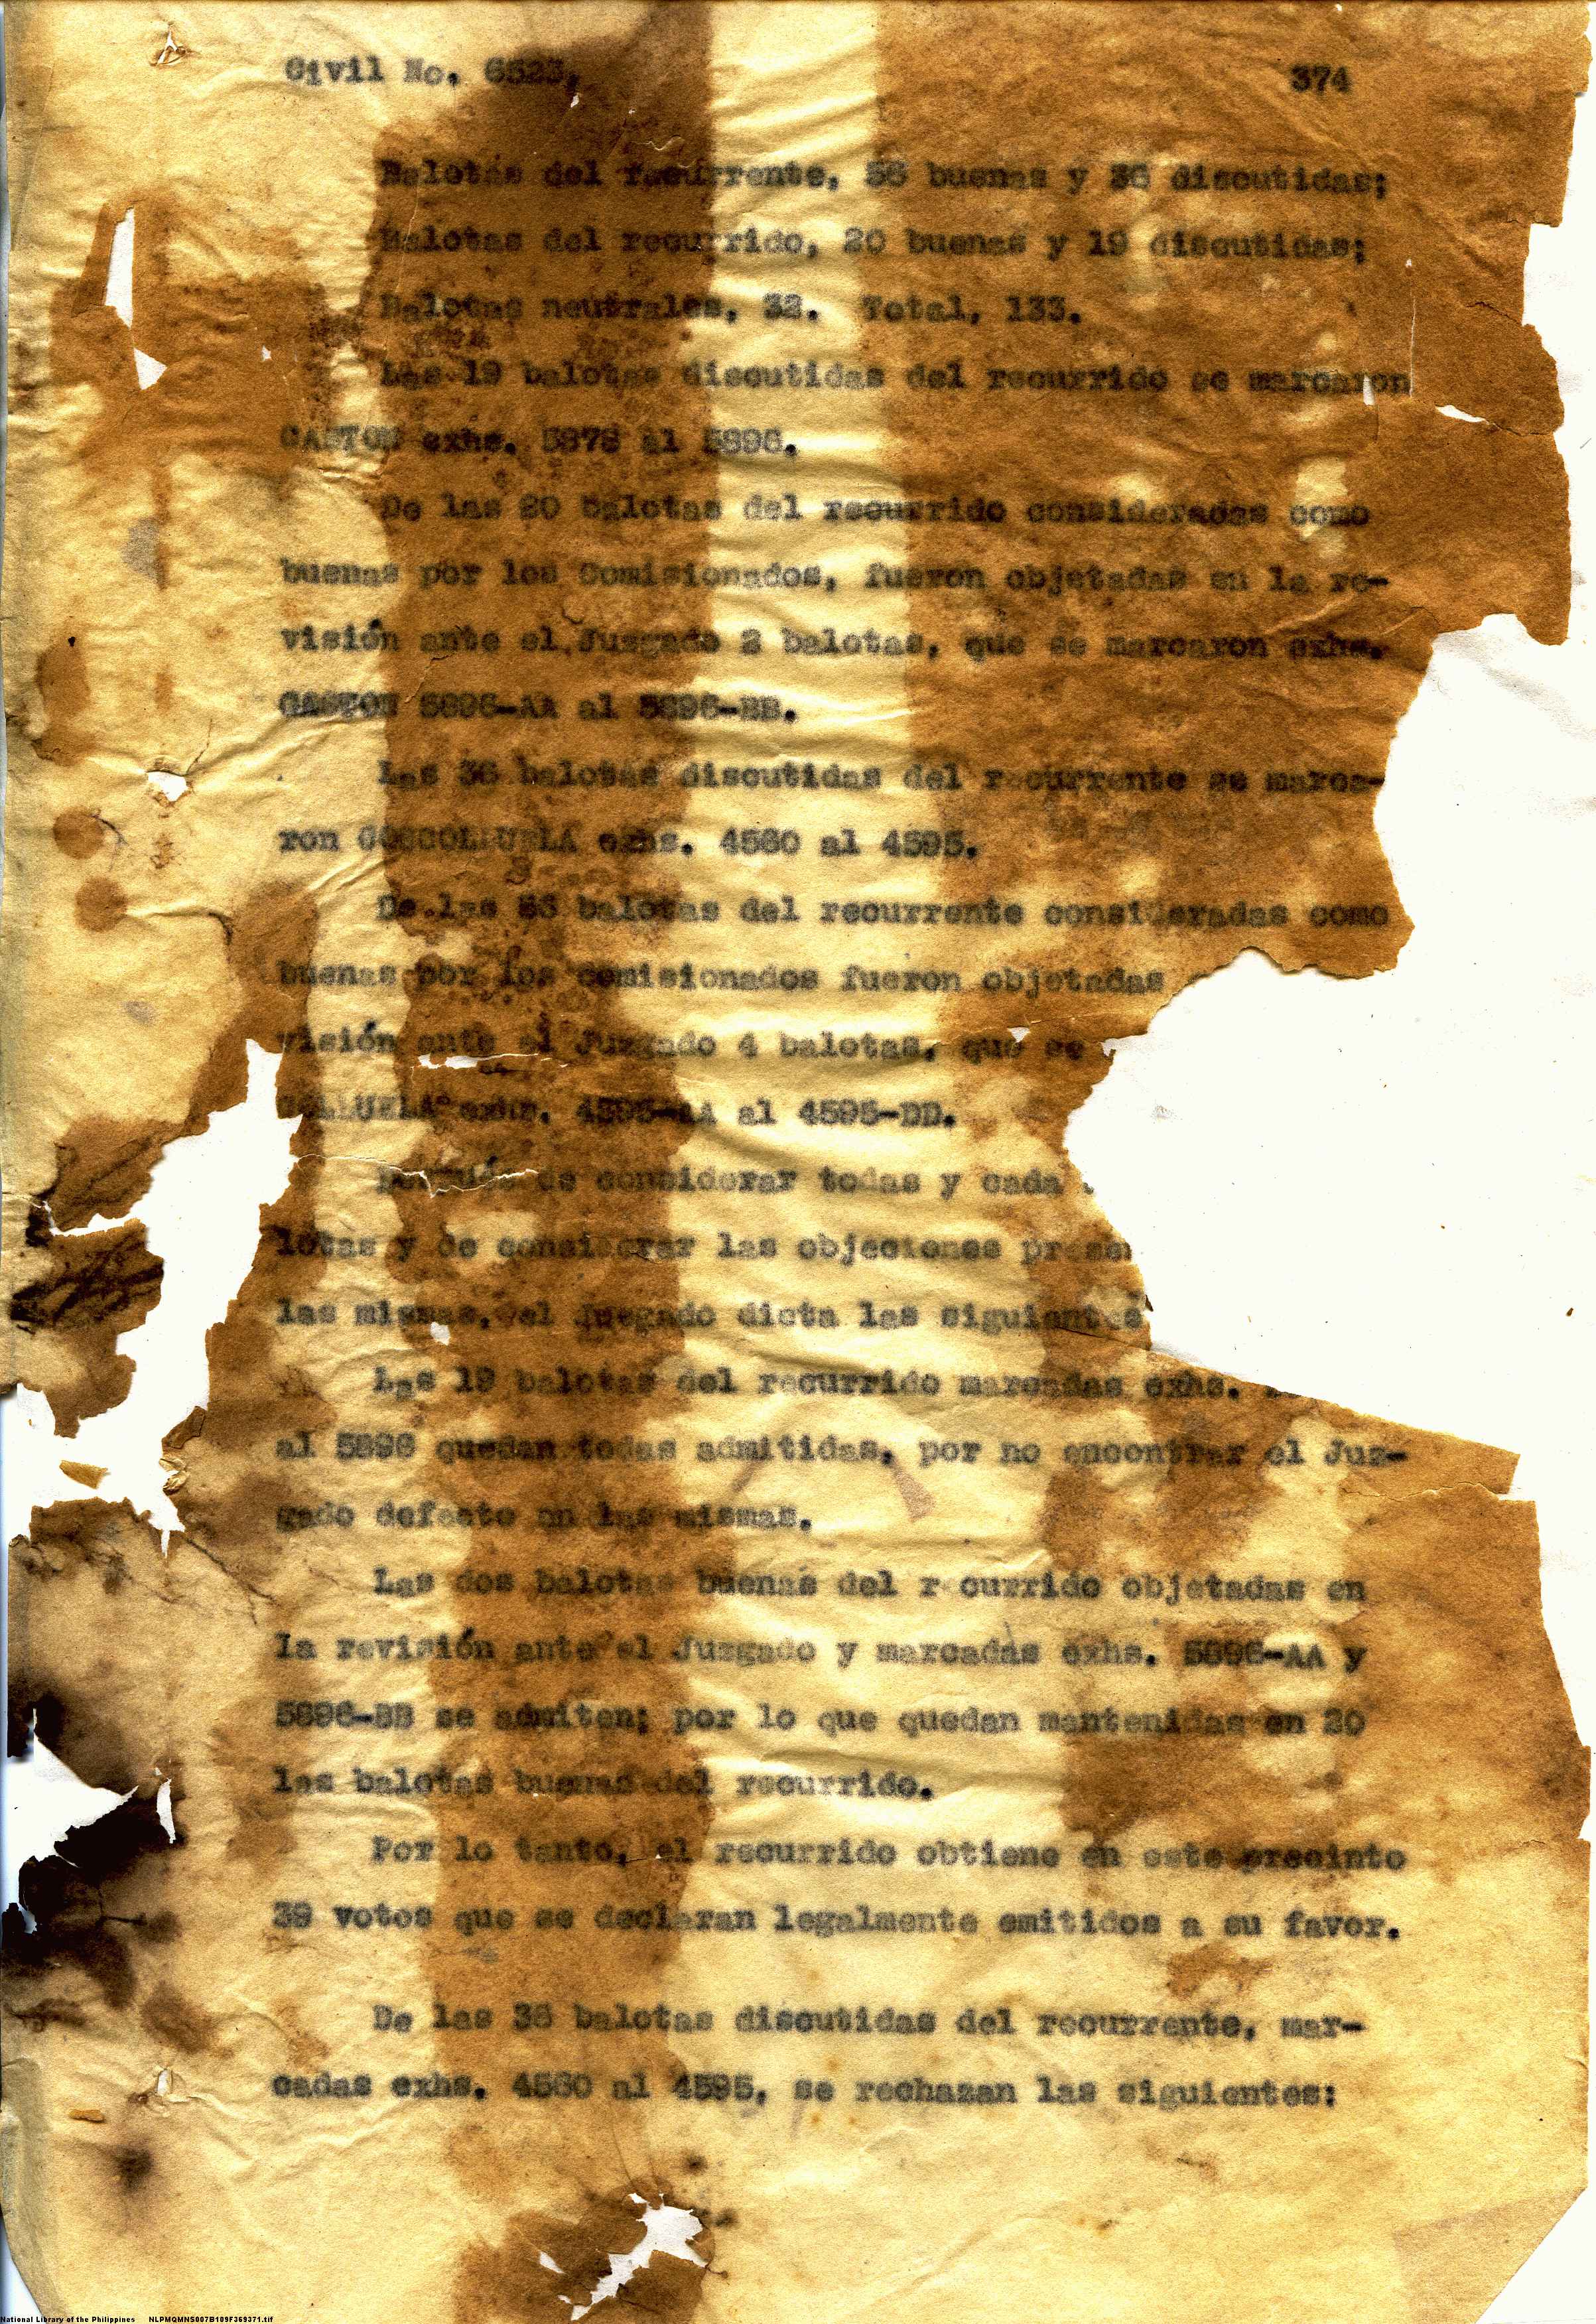 Civil No. 6523, 374
Balotas del recurrente, 56 buenas y 36 discutidas;
Balotas del recurrido, 20 buenas y 19 discutidas;
Balotas neutrales, 32. Total, 133.
Las 19 balotas discutidas del recurrido se marcaron
GASTON exhs. 5878 al 5896.
De las 20 balotas del recurrido consideradas como
buenas por los Comisionados, fueron objetadas en la re-
visión ante el Juzgado 2 balotas, que se marcaron exhs.
GASTON 5896-AA al 5896-BB.
Las 36 balotas discutidas del recurrente se marca-
ron GOSCOLLUELA exhs. 4560 al 4595.
De las 56 balotas del recurrente consideradas como
buenas por los comisionados fueron objetadas
visión ante el Juzgado 4 balotas, que se
COLLUELA exhs. 4595-AA al 4595-DD.
de considerar todas y cada
lotas y de considerar las objeciones
las mismas, el Juzgado dicta las siguientes
Las 19 balotas del recurrido marcadas exhs.
al 5896 quedan todas admitidas, por no encontrar el Juz-
gado defecto en las mismas.
Las dos balotas buenas del r currido objetadas en
la revisión ante el Juzgado y marcadas exhs. 5896-AA y
5896-BB se admiten; por lo que quedan mantenidas en 20
las balotas buenas del recurrido.
Por lo tanto, el recurrido obtiene en este precinto
39 votos que se declaran legalmente emitidos a su favor.
De las 36 balotas discutidas del recurrente, mar-
cadas exhs. 4560 al 4595, se rechazan las siguientes:
National Library of the Philippines NLPMQMNS007B109F369371.tif